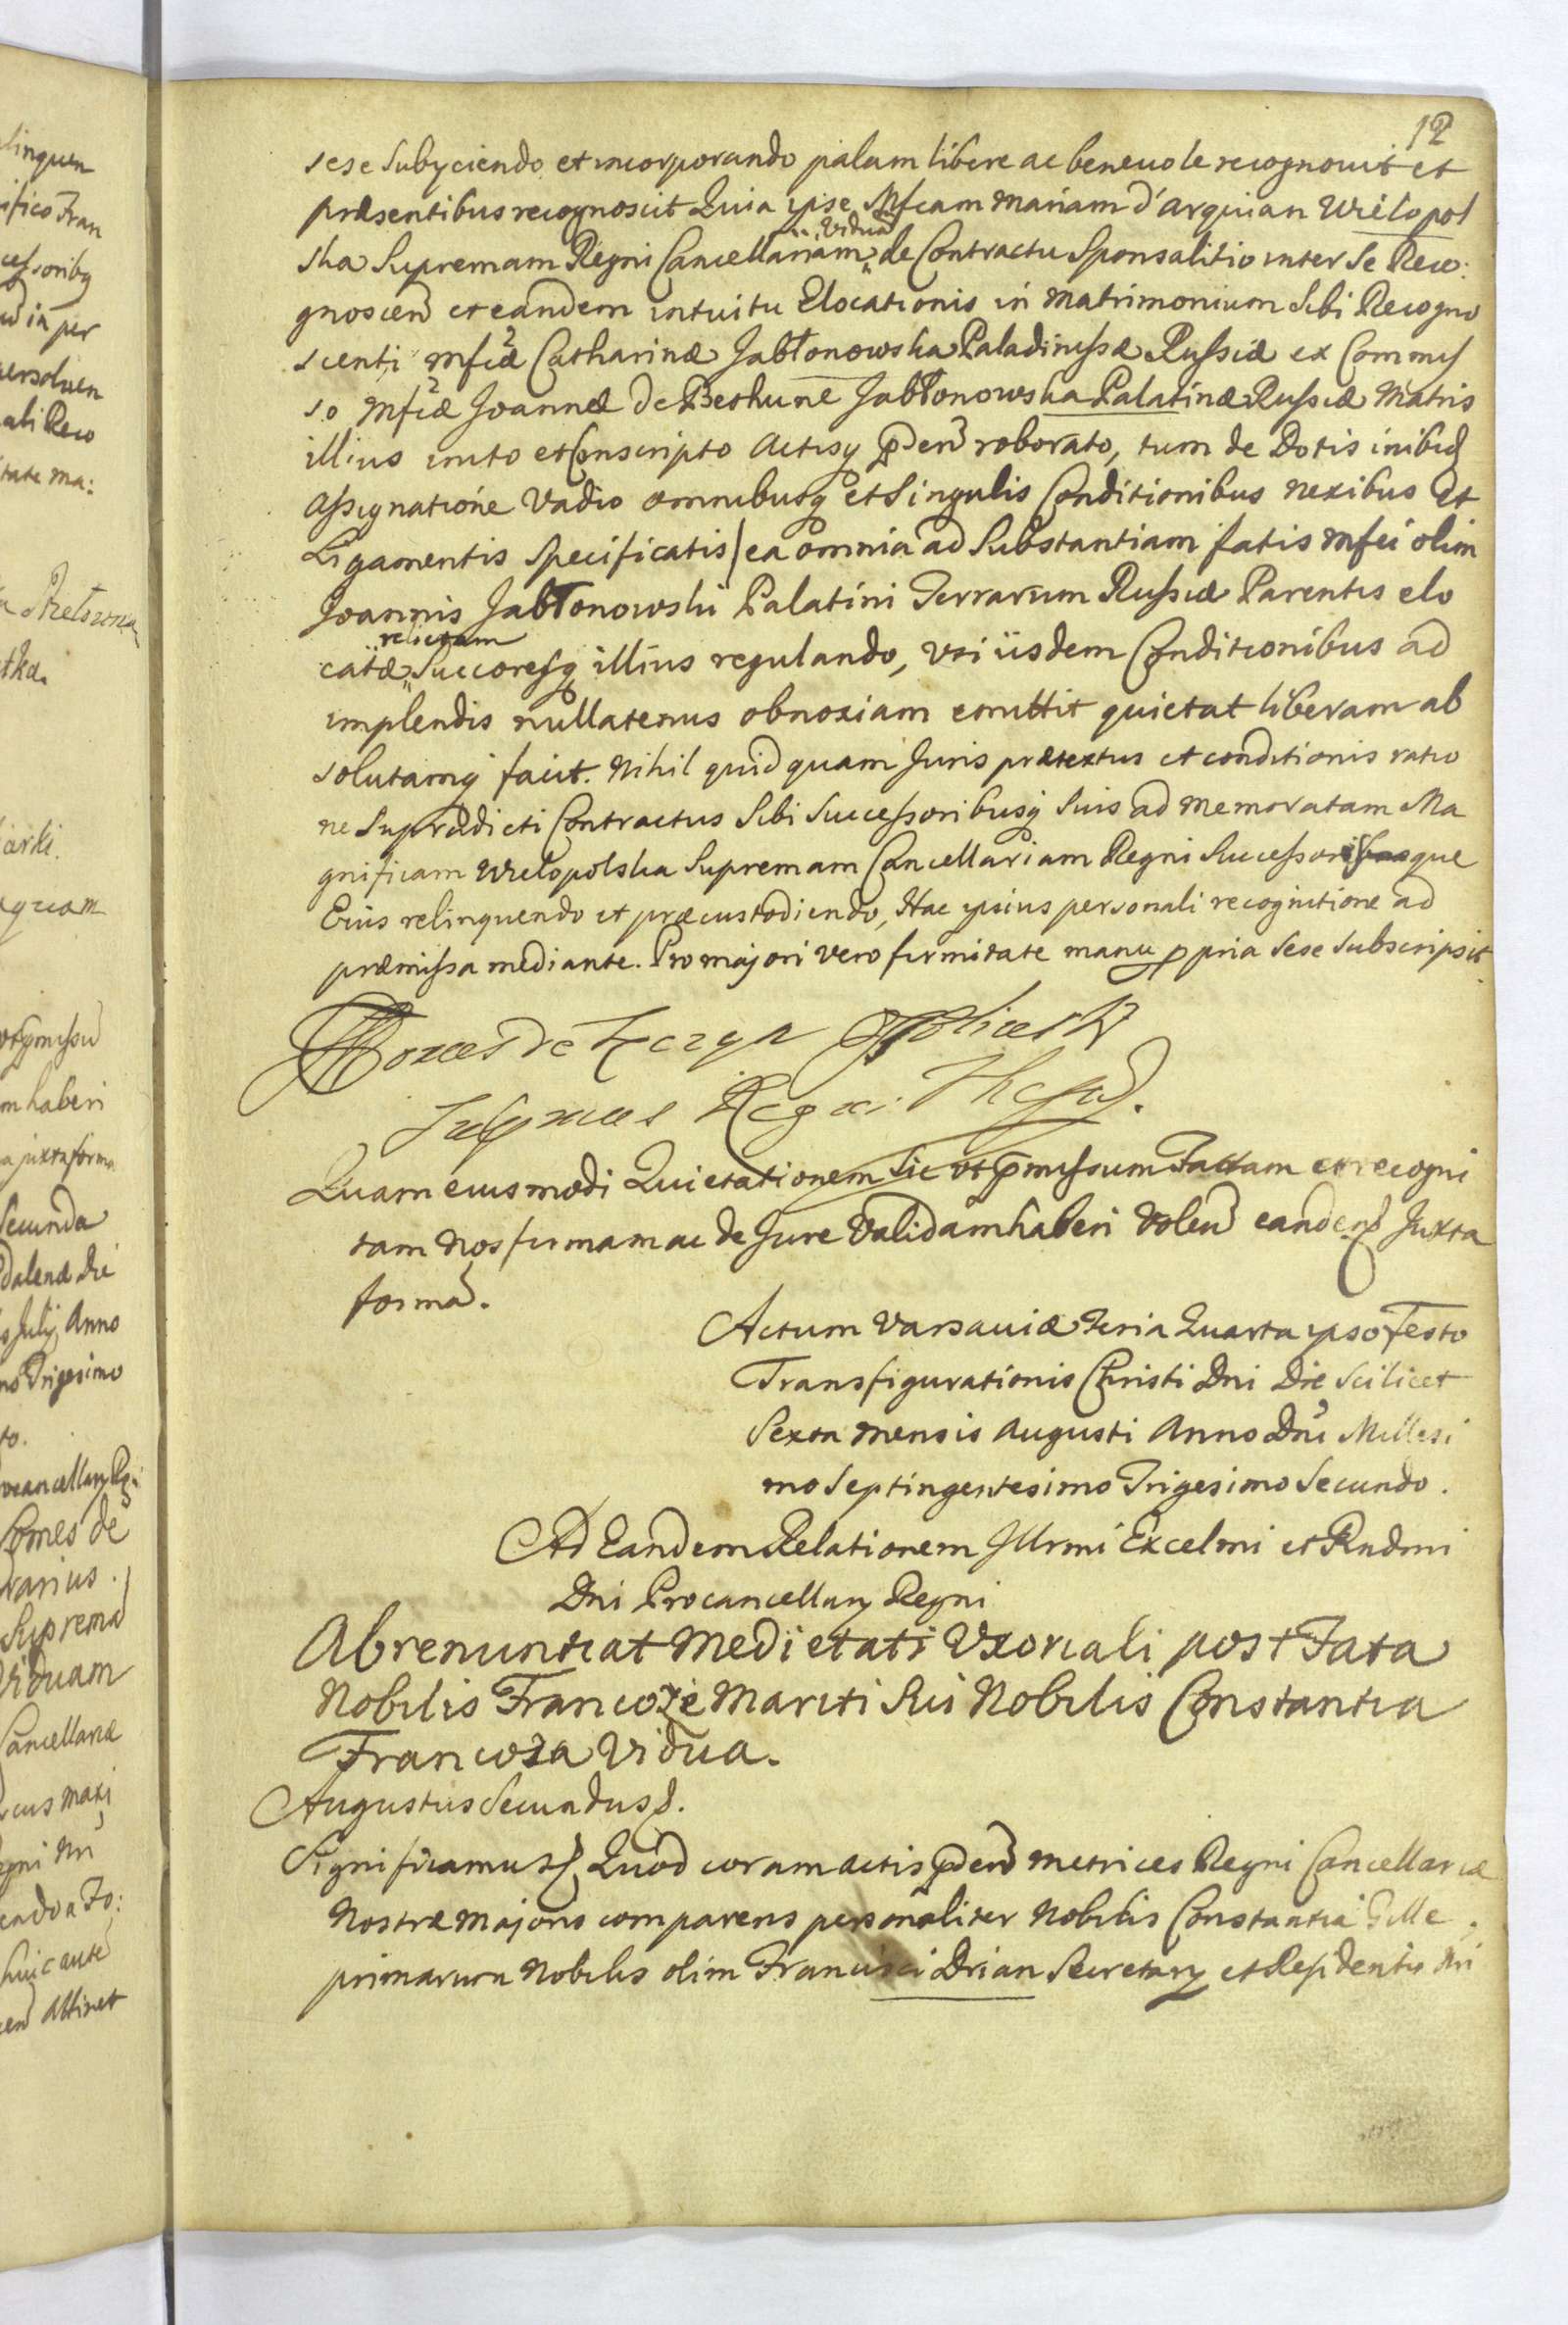 12
sese Subyciendo et incorporando palam libere ac beneuole recognouit et
præsentibus recognoscit Quia ipse Mfcam Mariam d'Arquian Wielopol
ska Supremam Regni Cancellariam viduã de Contractu Sponsalitio inter se Reco:
gnoscen et eandem intuitu Elocationis in Matrimonium Sibi Recogno
scenti Mfcæ Catharinæ Jabłonowska Paladinissæ Russiæ ex Commis
so Mfcæ Joannæ de Bethune Jabłonowska Palatinæ Russiæ Matris
illius inito et Conscripto Actisq pden roborato, tum de Dotis inibiq
Assignatione Vadio omnibusq et Singulis Conditionibus nexibus et
Ligamentis Specificatis / ea omnia ad Substantiam fatis Mfci olim
Joannis Jabłonowski Palatini Terrarum Russiæ Parentis elo
catæ relictam Succoresq illius regulando, Vti iisdem Conditionibus ad
implendis nullatenus obnoxiam emittit quietat liberam ab
solutamq facit. Nihil quidquam Juris prætextus et conditionis ratio
ne Supradicti Contractus Sibi Successoribusq Suis ad Memoratam Ma
gnificam Wielopolska Supremam Cancellariam Regni Successoresque
Eius relinquendo et præcustodiendo, Hac ipsius personali recognitione ad
præmissa mediante. Pro majori vero firmitate manu ppria Sese Subscripsit.
Regni Thesau.
Quam eius modi Quietationem Sic vt pmissum Factam et recogni
tam Nos firmam ac de Jure Validam haberi Volen eandem Juxta
formã.
Actum Varsaviæ Feria Quarta ipso Festo
Transfigurationis Christi Dni Die Scilicet
Sexta Mensis Augusti Anno Dni Millesi
mo Septingentesimo Trigesimo Secundo.
Ad Eandem Relationem Illrmi Excelmi et Rndmi
Dni Procancellary Regni
Abrenuntiat Medietati Vxoriali post Fata
Nobilis Francoze Mariti Sui Nobilis Constantia
Francoza Vidua.
Augustus Secundus.
Significamus Quod coram actis pden Metrices Regni Cancellariæ
Nostræ Majoris comparens personaliter Nobilis Constantia Gille
primarum Nobilis olim Francisci Drian Secretary et Residentis Nri